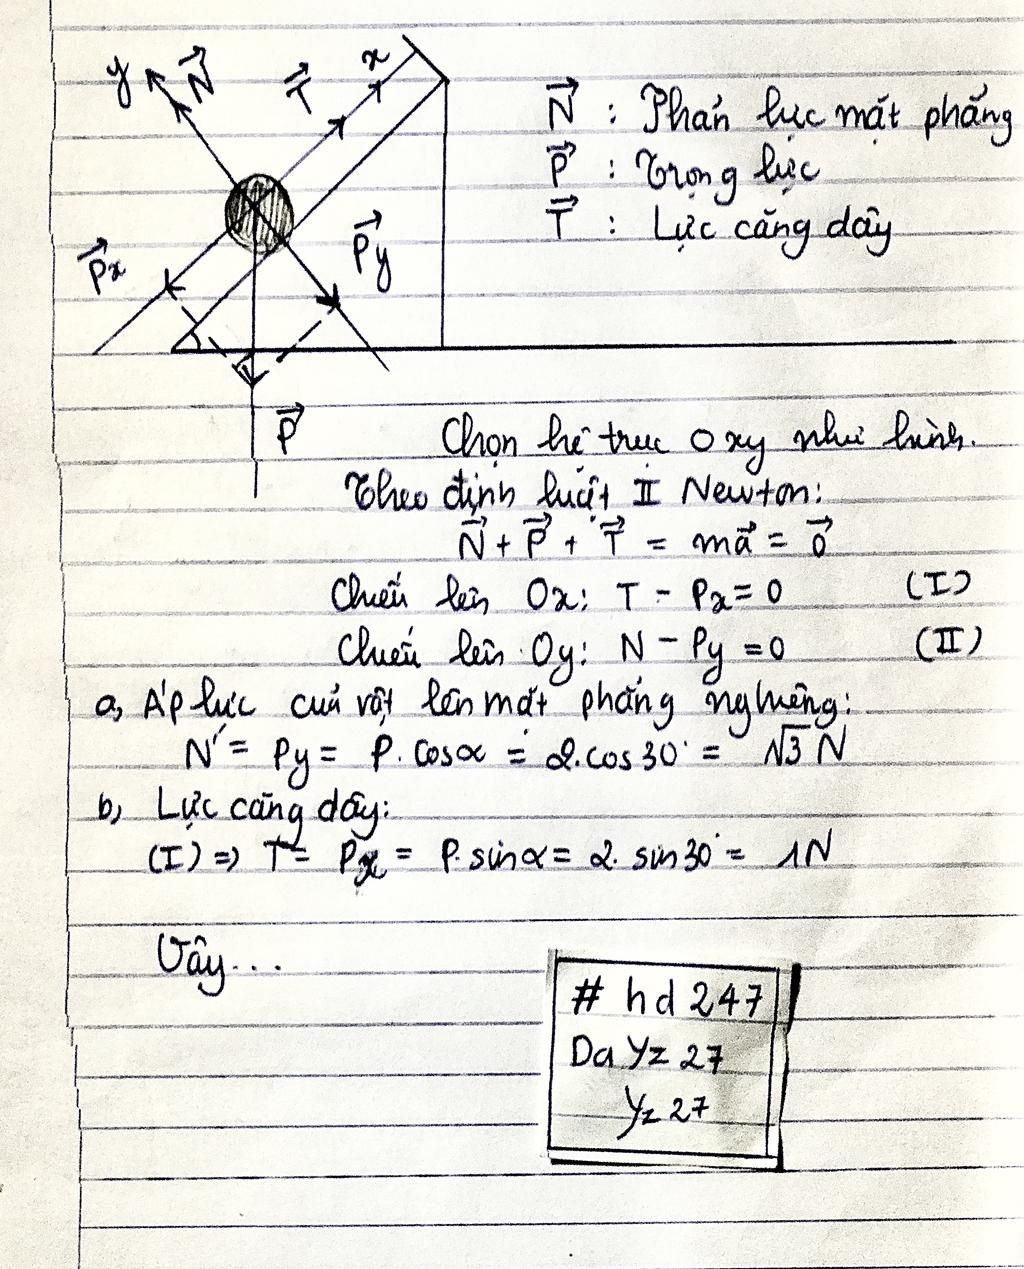 y N⃗ T⃗ x
N⃗ : Phản lực mặt phẳng
P⃗ : Trọng lực
T⃗ : Lực căng dây
P⃗x P⃗y
P⃗
Chọn hệ trục Oxy như hình.
Theo định luật II Newton:
N⃗ + P⃗ + T⃗ = ma⃗ = 0⃗
Chiếu lên Ox: T - Px = 0 (I)
Chiếu lên Oy: N - Py = 0 (II)
a, Áp lực của vật lên mặt phẳng nghiêng:
N' = Py = P. cosα = 2.cos30° = √3 N
b, Lực căng dây:
(I) => T = Px = P. sinα = 2. sin30° = 1N
Vậy...
# hd 247
Da Yz 27
Yz 27